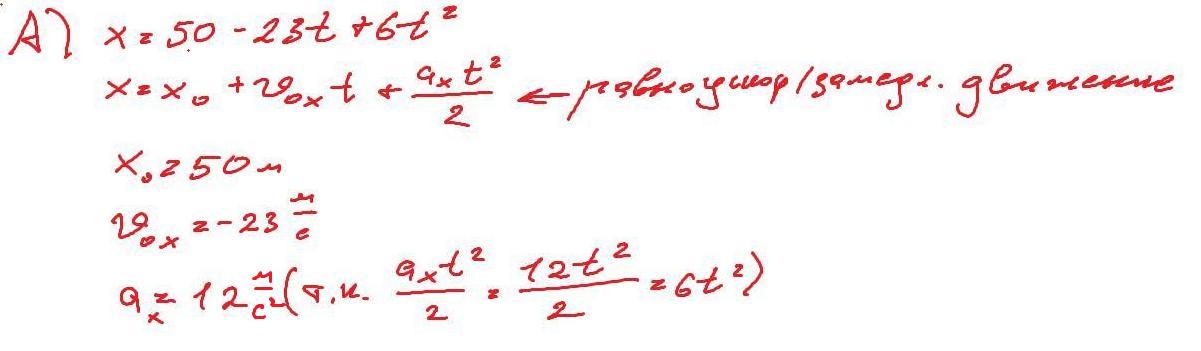 А) x = 50 - 23t + 6t²
x = x₀ + υ₀ₓt + aₓt²/2 ← равноускор/замедл. движение
x₀ = 50 м
υ₀ₓ = -23 м/с
aₓ = 12 м/с² (т.к. aₓt²/2 = 12t²/2 = 6t²)